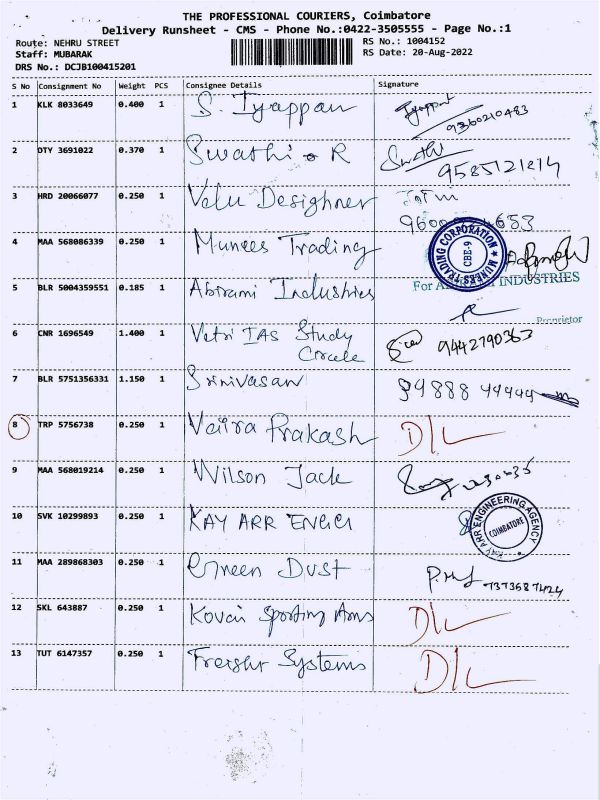 THE PROFESSIONAL COURIERS, Coimbatore
Delivery Runsheet - CMS - Phone No.:0422-3505555 - Page No.:1
Route: NEHRU STREET
RS No.: 1004152
Staff: MUBARAK
RS Date: 20-Aug-2022
DRS No.: DCJB100415201
S No Consignment No Weight PCS Consignee Details Signature
1 KLK 8033649 0.400 1 S. Iyappan Iyappan
9360210483
2 DTY 3691022 0.370 1 Swathi R Swathi
9585121214
3 HRD 20066077 0.250 1 Velu Designner
653
4 MAA 568086339 0.250 1 Munees Trading
MUNEES TRADING CORPORATION
CBE-9
5 BLR 5004359551 0.185 1 Abirami Industries
For INDUSTRIES
Proprietor
6 CNR 1696549 1.400 1 Vetri IAS Study
Circle
9442790363
7 BLR 5751356331 1.150 1 Srinivasan 94888 44444
8 TRP 5756738 0.250 1 Vaira Prakash D/L
9 MAA 568019214 0.250 1 Wilson Jack
10 SVK 10299893 0.250 1 KAY ARR ENGG
KAY ARR ENGINEERING AGENCY
COIMBATORE
11 MAA 289868303 0.250 1 Green Dust
7373687424
12 SKL 643887 0.250 1 Kovai Sporting Arms D/L
13 TUT 6147357 0.250 1 Freight Systems D/L